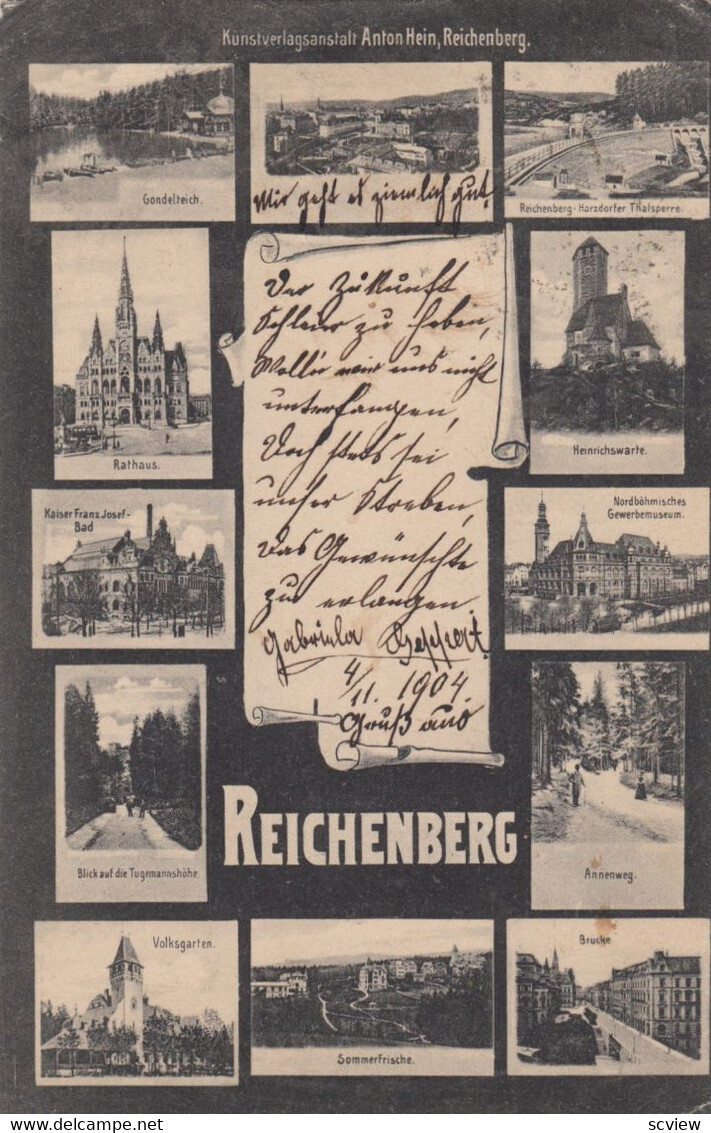 Kunstverlagsanstalt Anton Hein, Reichenberg.
Gondelteich.
Mir geht es ziemlich gut.
Reichenberg-Harzdorfer Thalsperre.
Der Zukunft
Schleier zu heben,
Wollen wir uns nicht
unterfangen,
Doch stets sei
unser Streben,
Das Gewünschte
zu erlangen
Gabriela Geppert
4/11. 1904
Gruß aus
REICHENBERG
Rathaus.
Heinrichswarte.
Kaiser Franz Josef-
Bad
Nordböhmisches
Gewerbemuseum.
Blick auf die Tugemannshöhe.
Annenweg.
Volksgarten.
Sommerfrische.
Brücke
www.delcampe.net
scview